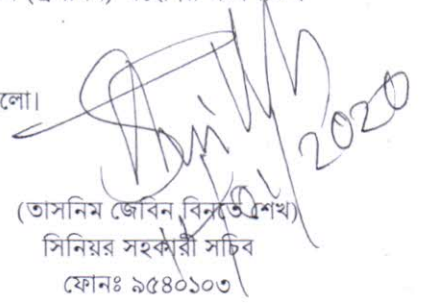 লো।
2020
(তাসনিম জেবিন বিনতে শেখ)
সিনিয়র সহকারী সচিব
ফোনঃ ৯৫৪০১০৩